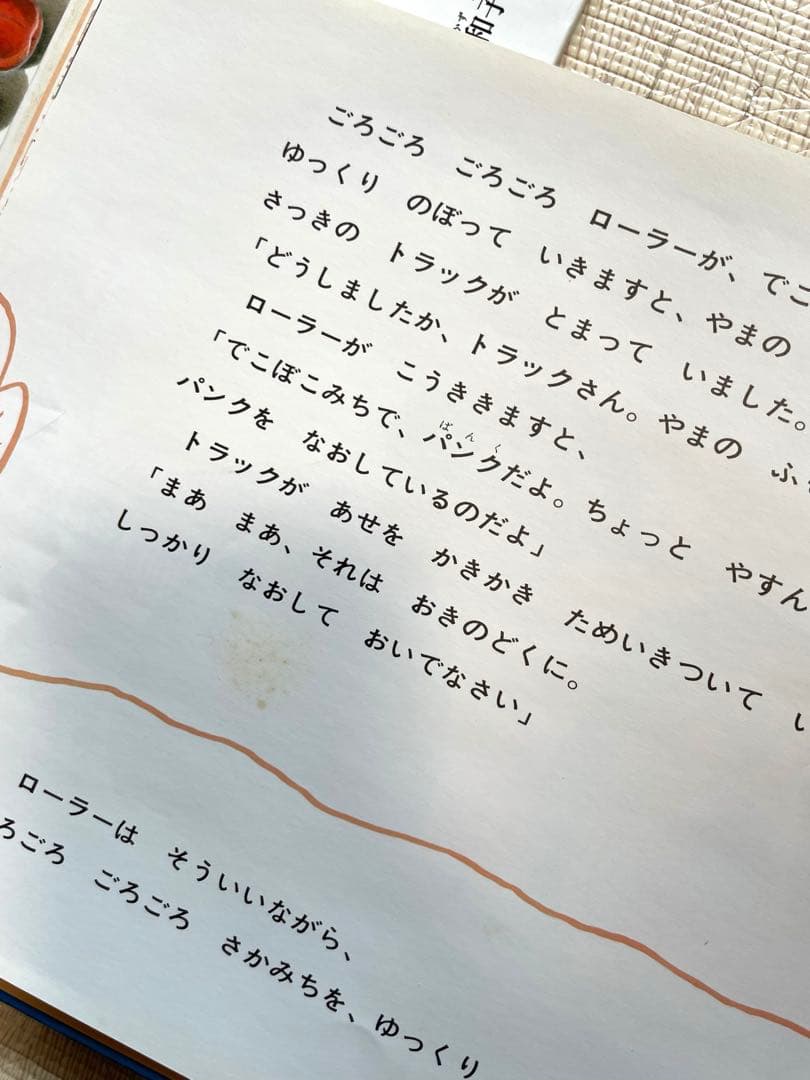 ごろごろ　ごろごろ　ローラーが、でこ
ゆっくり　のぼって　いきますと、やまの
さっきの　トラックが　とまって　いました。
「どうしましたか、トラックさん。やまの　ふ
ローラーが　こうききますと、
「でこぼこみちで、パンクだよ。ちょっと　やすん
ぱんく
パンクを　なおしているのだよ」
トラックが　あせを　かきかき　ためいきついて　い
「まあ　まあ、それは　おきのどくに。
しっかり　なおして　おいでなさい」
ローラーは　そういいながら、
ろごろ　ごろごろ　さかみちを、ゆっくり